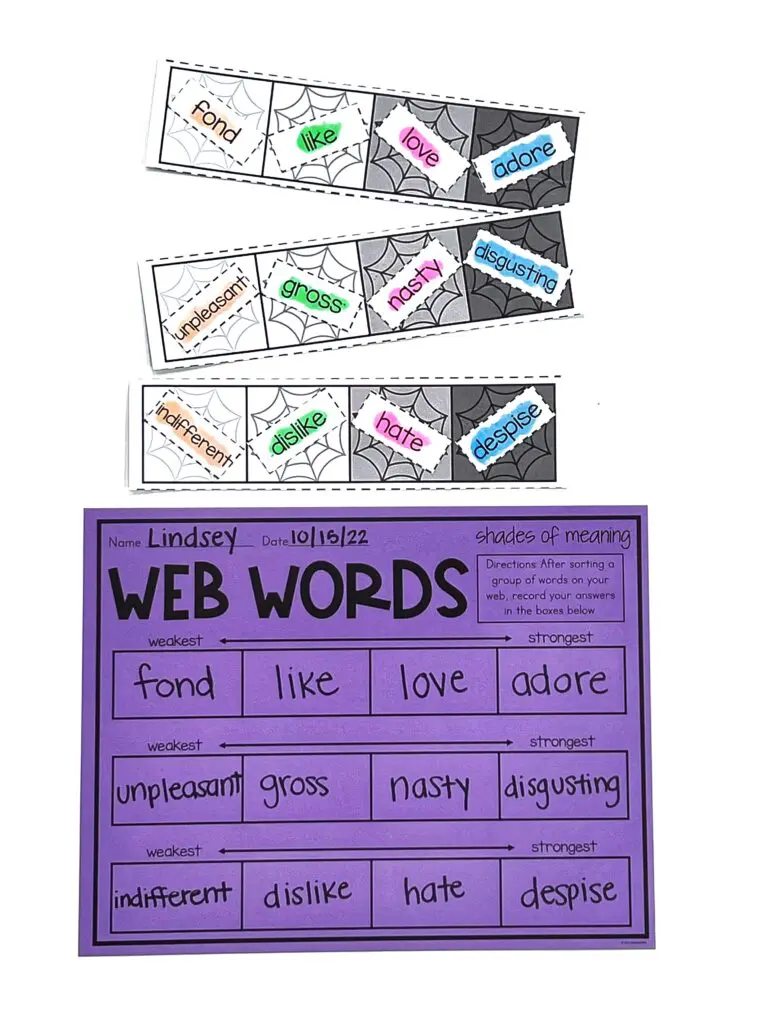 fond like love adore
unpleasant gross nasty disgusting
indifferent dislike hate despise
Name Lindsey Date 10/15/22 shades of meaning
WEB WORDS
Directions: After sorting a
group of words on your
web, record your answers
in the boxes below
weakest strongest
fond like love adore
weakest strongest
unpleasant gross nasty disgusting
weakest strongest
indifferent dislike hate despise